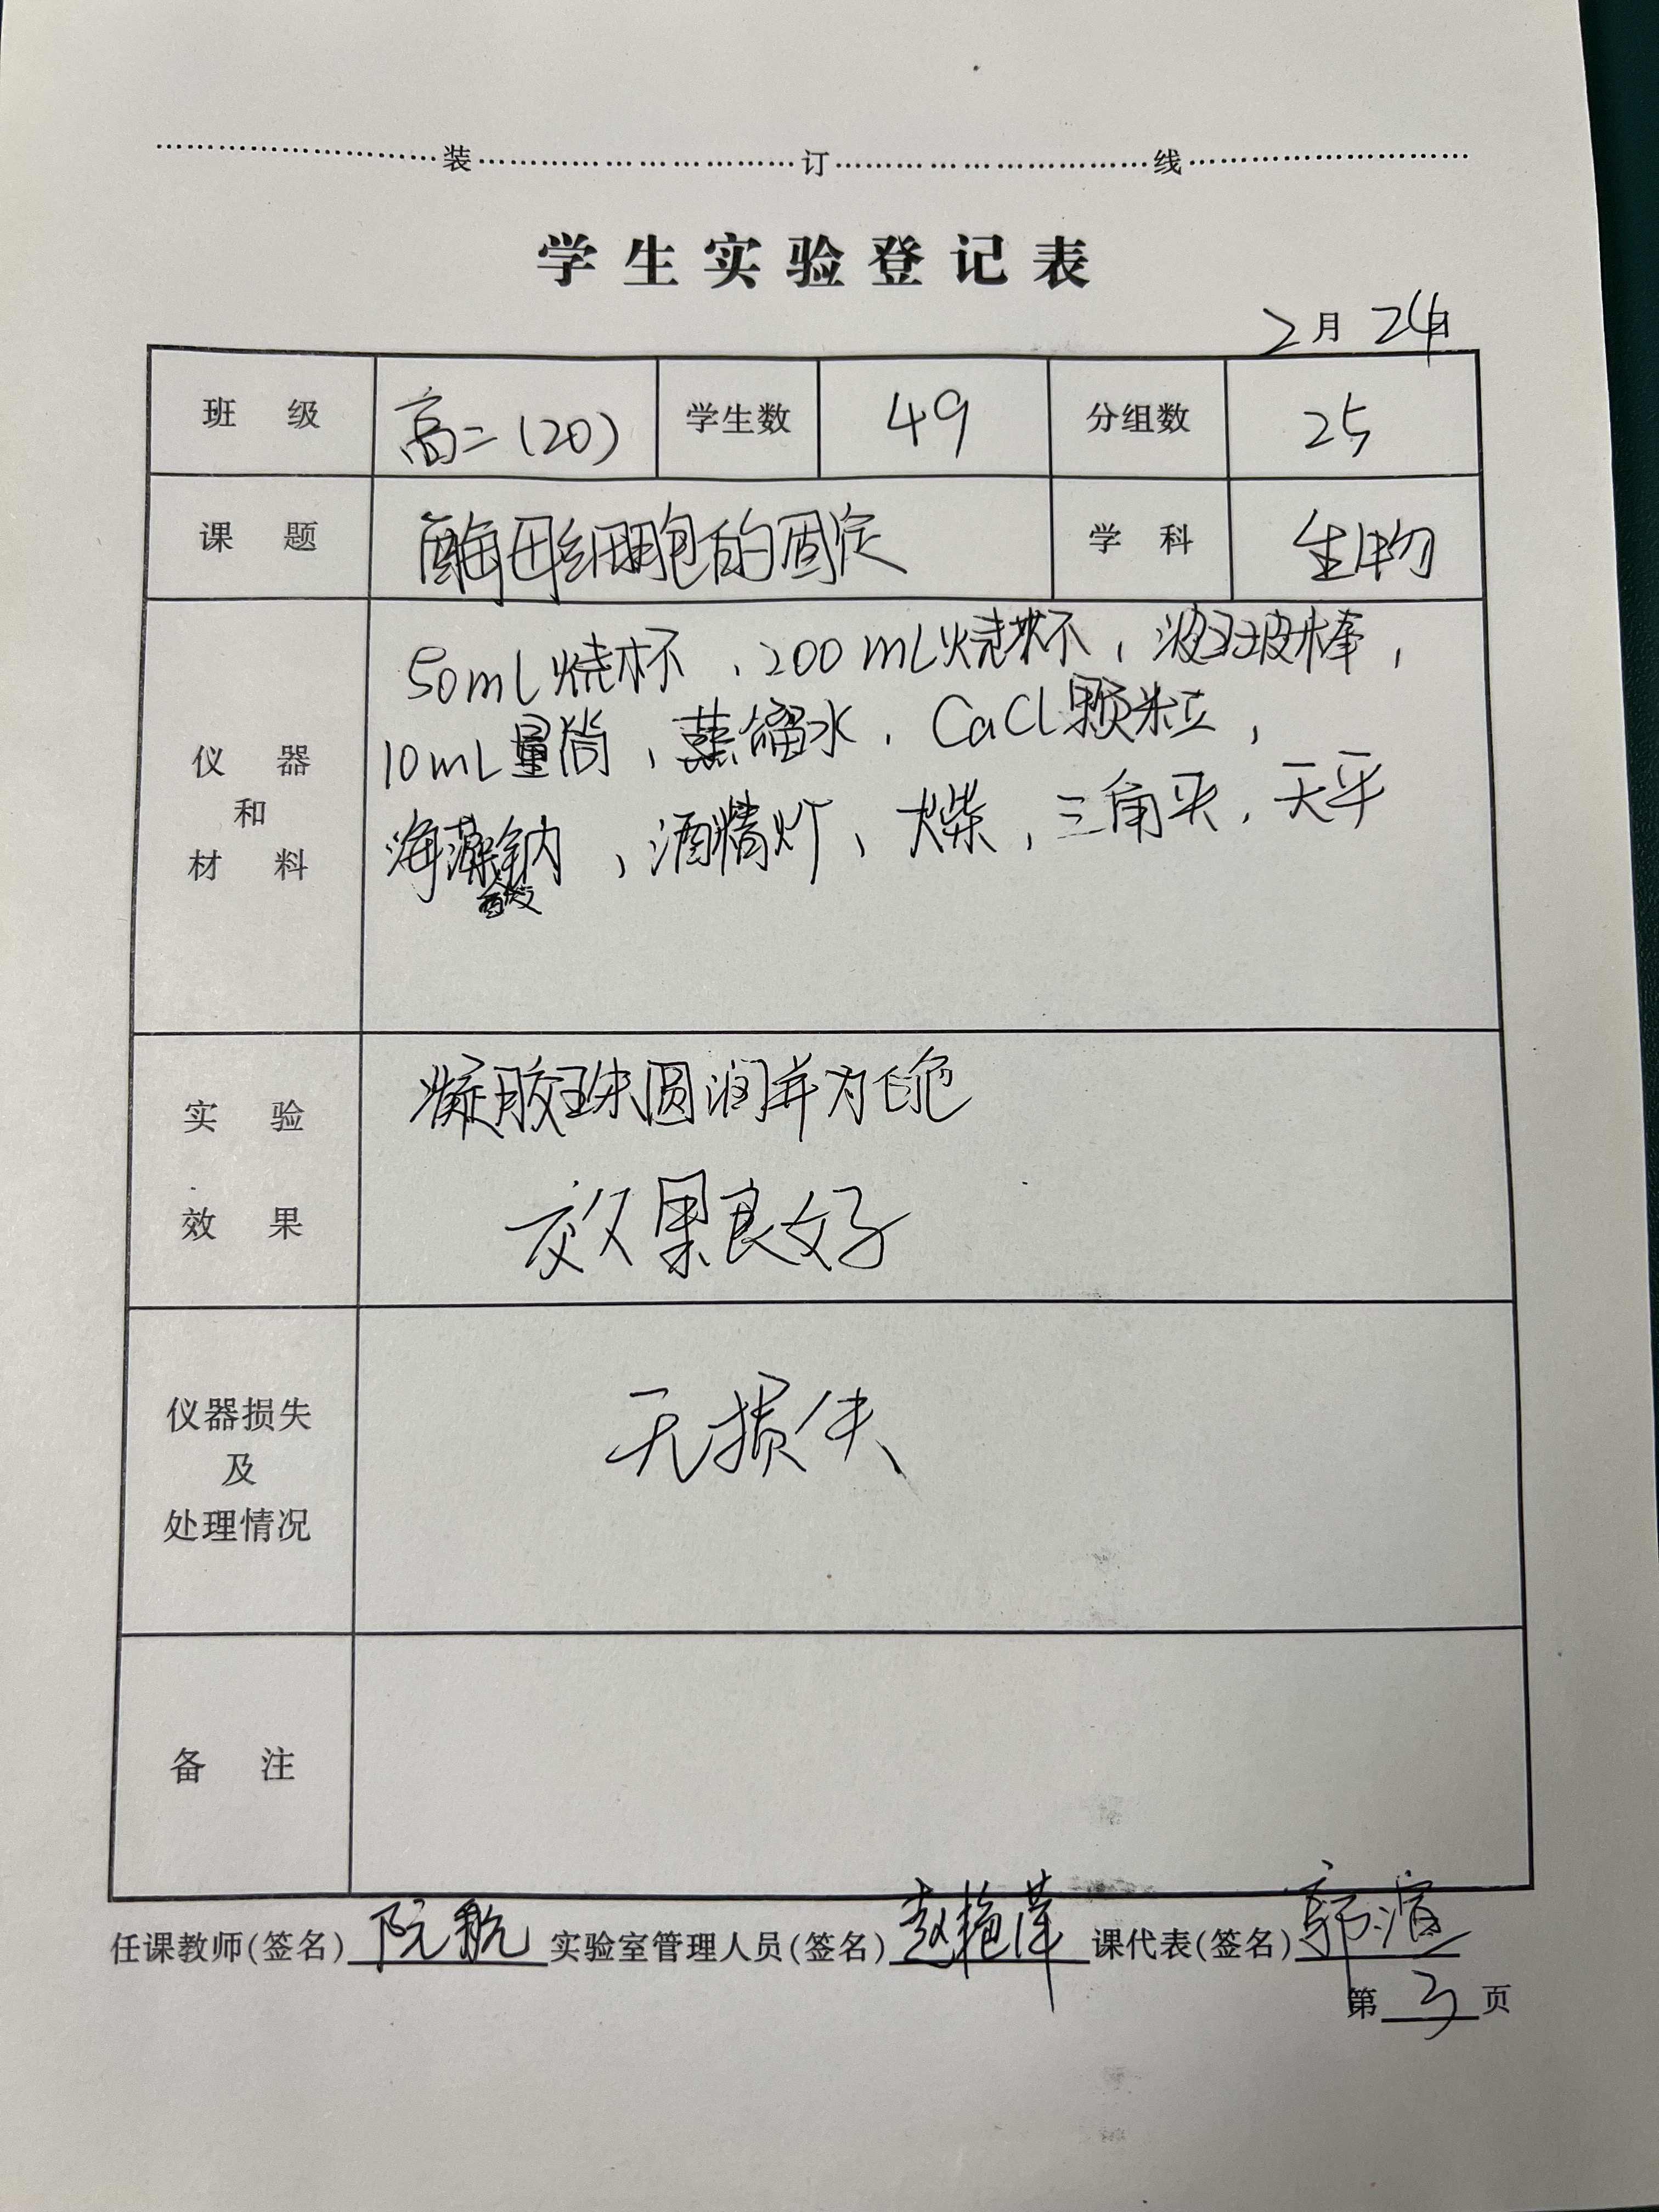 装 订 线
学生实验登记表
2月24日
班级 高二(20) 学生数 49 分组数 25
课题 酶母细胞的固定 学科 生物
仪器和材料
50mL烧杯、200mL烧杯,玻璃棒,
10mL量筒,蒸馏水,CaCl颗粒,
海藻酸钠,酒精灯、火柴,三角架,天平
实验效果
凝胶珠圆润并为白色
效果良好
仪器损失
及
处理情况
无损失
备注
任课教师(签名) 阮航 实验室管理人员(签名) 赵艳萍 课代表(签名) 郭
第3页